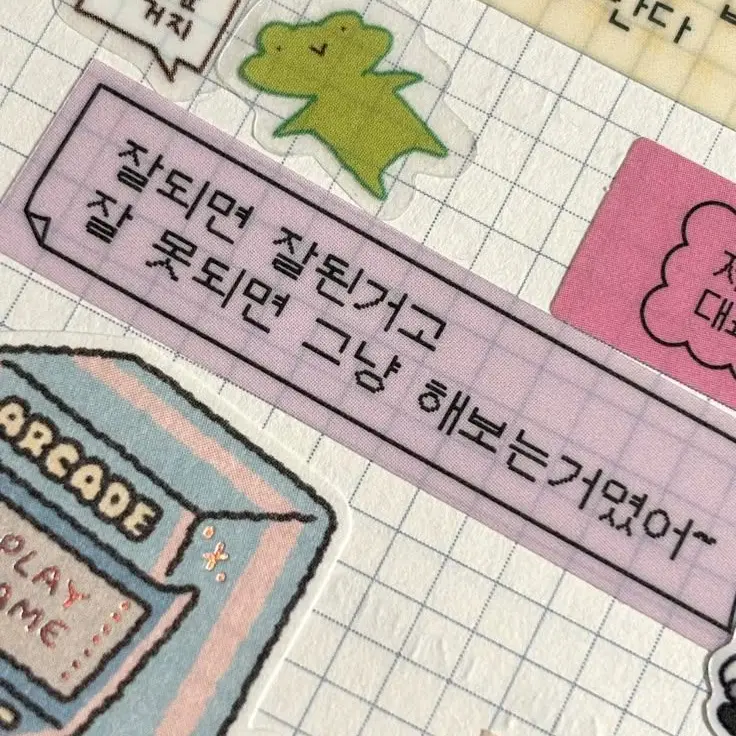 거지
한다
잘되면 잘된거고
잘 못되면 그냥 해보는거였어~
대
ARCADE
PLAY